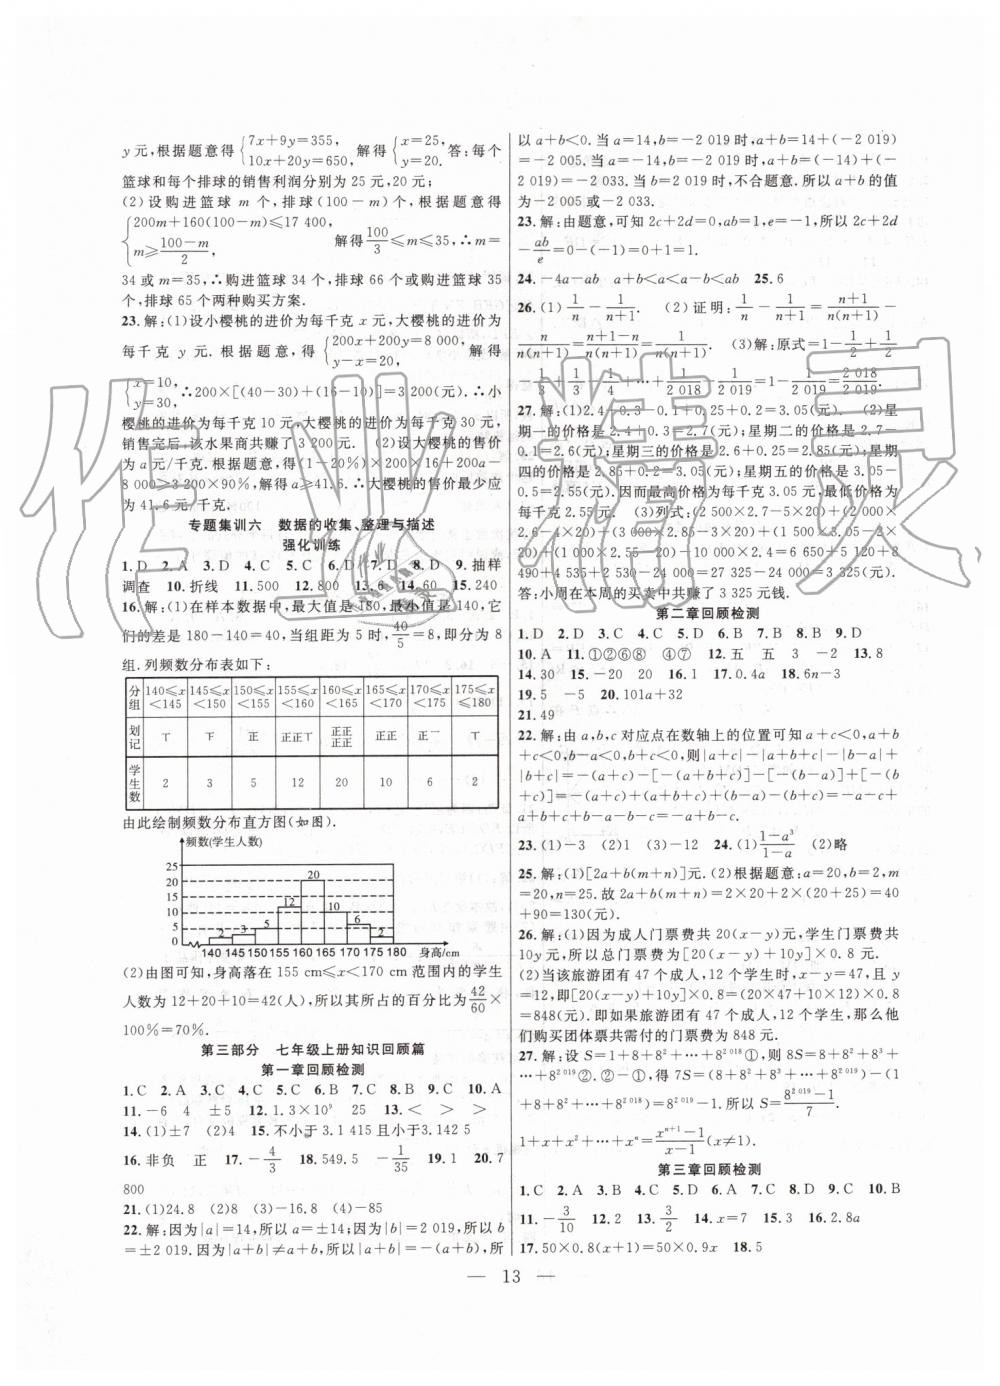 y 元,根据题意得{7x+9y=355, 10x+20y=650, 解得{x=25, y=20. 答:每个
篮球和每个排球的销售利润分别为 25 元,20 元;
(2)设购进篮球 m 个,排球(100-m)个,根据题意得
{200m+160(100-m)≤17 400, m≥(100-m)/2, 解得100/3≤m≤35,∴m=
34 或 m=35,∴购进篮球 34 个,排球 66 个或购进篮球 35
个,排球 65 个两种购买方案.
23.解:(1)设小樱桃的进价为每千克 x 元,大樱桃的进价为
每千克 y 元.根据题意得:{200x+200y=8 000, y-x=20. 解得:
{x=10, y=30, ∴200×[(40-30)+(16-10)]=3 200(元).∴小
樱桃的进价为每千克 10 元,大樱桃的进价为每千克 30 元,
销售完后,该水果商共赚了 3 200元. (2)设大樱桃的售价
为 a 元/千克.根据题意得:(1-20%)×200×16+200a-
8 000≥3 200×90%,解得:a≥41.6.∴大樱桃的售价最少应
为 41.6元/千克.
专题集训六 数据的收集、整理与描述
强化训练
1.D 2.A 3.D 4.C 5.C 6.D 7.D 8.D 9.抽样
调查 10.折线 11.500 12.800 13.6 14.60 15.240
16.解:(1)在样本数据中,最大值是 180,最小值是 140,它
们的差是 180-140=40,当组距为 5 时,40/5=8,即分为 8
组.列频数分布表如下:
分组 140≤x<145 145≤x<150 150≤x<155 155≤x<160 160≤x<165 165≤x<170 170≤x<175 175≤x≤180
划记 正 正正 正正正正 正正 正
学生数 2 3 5 12 20 10 6 2
由此绘制频数分布直方图(如图).
频数(学生人数)
25
20
15
10
5
0
2 3 5 12 20 10 6 2
140 145 150 155 160 165 170 175 180 身高/cm
(2)由图可知,身高落在 155 cm≤x<170 cm 范围内的学生
人数为 12+20+10=42(人),所以其所占的百分比为42/60×
100%=70%.
第三部分 七年级上册知识回顾篇
第一章回顾检测
1.C 2.A 3.C 4.C 5.C 6.B 7.B 8.C 9.C 10.A
11.-6 4 ±5 12.1.3×10⁹ 25 13.< > >
14.(1)±7 (2)4 15.不小于3.1 415 且小于3.142 5
16.非负 正 17.-4/3 18.549.5 -1/35 19.1 20.7
800
21.(1)24.8 (2)8 (3)-8 (4)-85
22.解:因为|a|=14,所以a=±14;因为|b|=2 019,所以 b
=±2 019.因为|a+b|≠a+b,所以|a+b|=-(a+b),所
以 a+b<0.当 a=14,b=-2 019 时,a+b=14+(-2 019)
=-2 005.当 a=-14,b=-2 019 时,a+b=(-14)+(-
2 019)=-2 033.当 b=2 019时,不合题意.所以 a+b 的值
为-2 005或-2 033.
23.解:由题意,可知 2c+2d=0,ab=1,e=-1,所以 2c+2d
-ab/e=0-(-1)=0+1=1.
24.-4a-ab a+b<a<a-b<ab 25.6
26.(1)1/n-1/(n+1). (2)证明:1/n-1/(n+1)=(n+1)/n(n+1)-
n/n(n+1)=(n+1-n)/n(n+1)=1/n(n+1). (3)解:原式=1-1/2+1/2-
1/3+1/3-1/4+…+1/2 018-1/2 019=1-1/2 019=2 018/2 019.
27.解:(1)2.4+0.3-0.1+0.25+0.2=3.05(元). (2)星
期一的价格是:2.4+0.3=2.7(元);星期二的价格是:2.7-
0.1=2.6(元);星期三的价格是 2.6+0.25=2.85(元);星期
四的价格是 2.85+0.2=3.05(元);星期五的价格是 3.05-
0.5=2.55(元).因而最高价格为每千克 3.05 元,最低价格为
每千克 2.55 元. (3)列式:(2 500×2.7-5×20)+(2 000×
2.6-4×20)+(3 000×2.85-3×20)+(1 500×3.05-2×
20)+(1 000×2.55-20)-10 000×2.4=6 650+5 120+8
490+4 535+2 530-24 000=27 325-24 000=3 325(元).
答:小周在本周的买卖中共赚了 3 325 元钱.
第二章回顾检测
1.D 2.D 3.C 4.C 5.D 6.B 7.B 8.B 9.D
10.A 11.①②⑥⑧ ④⑦ 12.五 五 3 -2 13.8
14.30 15.-20 20 16.1 17.0.4a 18.6n-3
19.5 -5 20.101a+32
21.49
22.解:由 a,b,c 对应点在数轴上的位置可知 a+c<0,a+b
+c<0,b-a<0,b+c<0,则|a+c|-|a+b+c|-|b-a|+
|b+c|=-(a+c)-[-(a+b+c)]-[-(b-a)]+[-(b
+c)]=-(a+c)+(a+b+c)+(b-a)-(b+c)=-a-c+
a+b+c+b-a-b-c=-a+b-c.
23.(1)-3 (2)1 (3)-12 24.(1)(1-a³)/(1-a) (2)略
25.解:(1)[2a+b(m+n)]元. (2)根据题意:a=20,b=2,m
=20,n=25.故 2a+b(m+n)=2×20+2×(20+25)=40
+90=130(元).
26.解:(1)因为成人门票费共 20(x-y)元,学生门票费共
10y元,所以总门票费为[20(x-y)+10y]×0.8 元.
(2)当该旅游团有 47 个成人,12 个学生时,x-y=47,且 y
=12,即[20(x-y)+10y]×0.8=(20×47+10×12)×0.8
=848(元).即如果旅游团有 47 个成人,12 个学生,那么他
们购买团体票共需付的门票费为 848 元.
27.解:设 S=1+8+8²+…+8²⁰¹⁸①,则 8S=8+8²+8³+
…+8²⁰¹⁹②.②-①,得 7S=(8+8²+8³+…+8²⁰¹⁹)-
(1+8+8²+…+8²⁰¹⁸)=8²⁰¹⁹-1.所以 S=(8²⁰¹⁹-1)/7.
1+x+x²+…+xⁿ=(xⁿ⁺¹-1)/(x-1)(x≠1).
第三章回顾检测
1.C 2.A 3.B 4.C 5.C 6.D 7.B 8.D 9.C 10.B
11.-3/10 12.2 13.3/2 14.x=7 15.3 16.2.8a
17.50×0.8(x+1)=50×0.9x 18.5
— 13 —
作业精灵